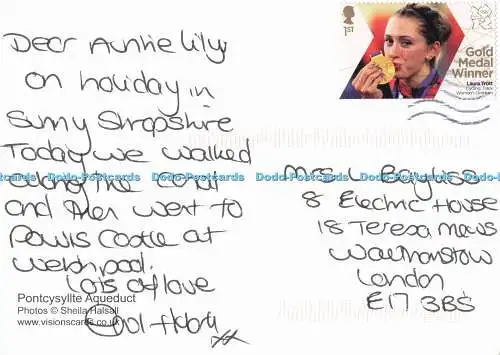 Dear Auntie Lily
on holiday in
Sunny Shropshire
Today we walked
along the canal
and then went to
Powis Castle at
Welshpool.
Lots of love
Pontcysyllte Aqueduct
Photos © Sheila Halsall
www.visionscards.co.uk
1st
Gold
Medal
Winner
Laura Trott
Cycling: Track
Women's Omnium
Mrs L Bayliss
8 Electric House
18 Teresa Mews
Walthamstow
London
E17 3BS
Dodo-Postcards Dodo-Postcards Dodo-Postcards Dodo-Postcards Dodo-Postcards